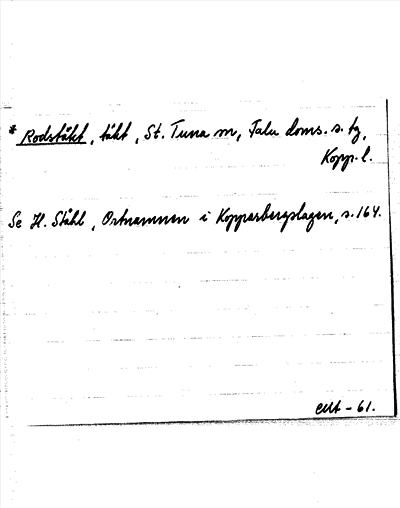 * Rodstäkt, täkt, St. Tuna sn, Falu doms. s. tg,
Kopp. l.
Se H. Ståhl, Ortnamnen i Kopparbergslagen, s. 164.
- 61.